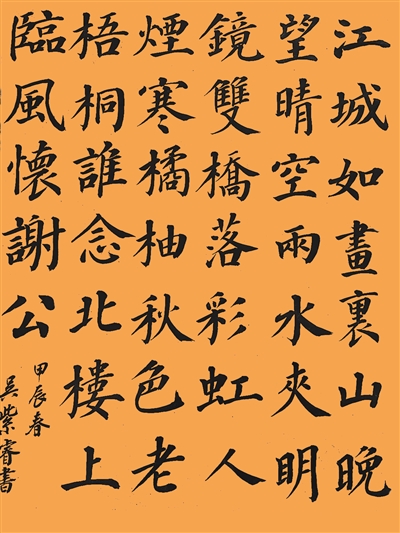 江城如畫裏山晚
望晴空兩水夾明
鏡雙橋落彩虹人
煙寒橘柚秋色老
梧桐誰念北樓上
臨風懷謝公
甲辰春
吴紫睿書